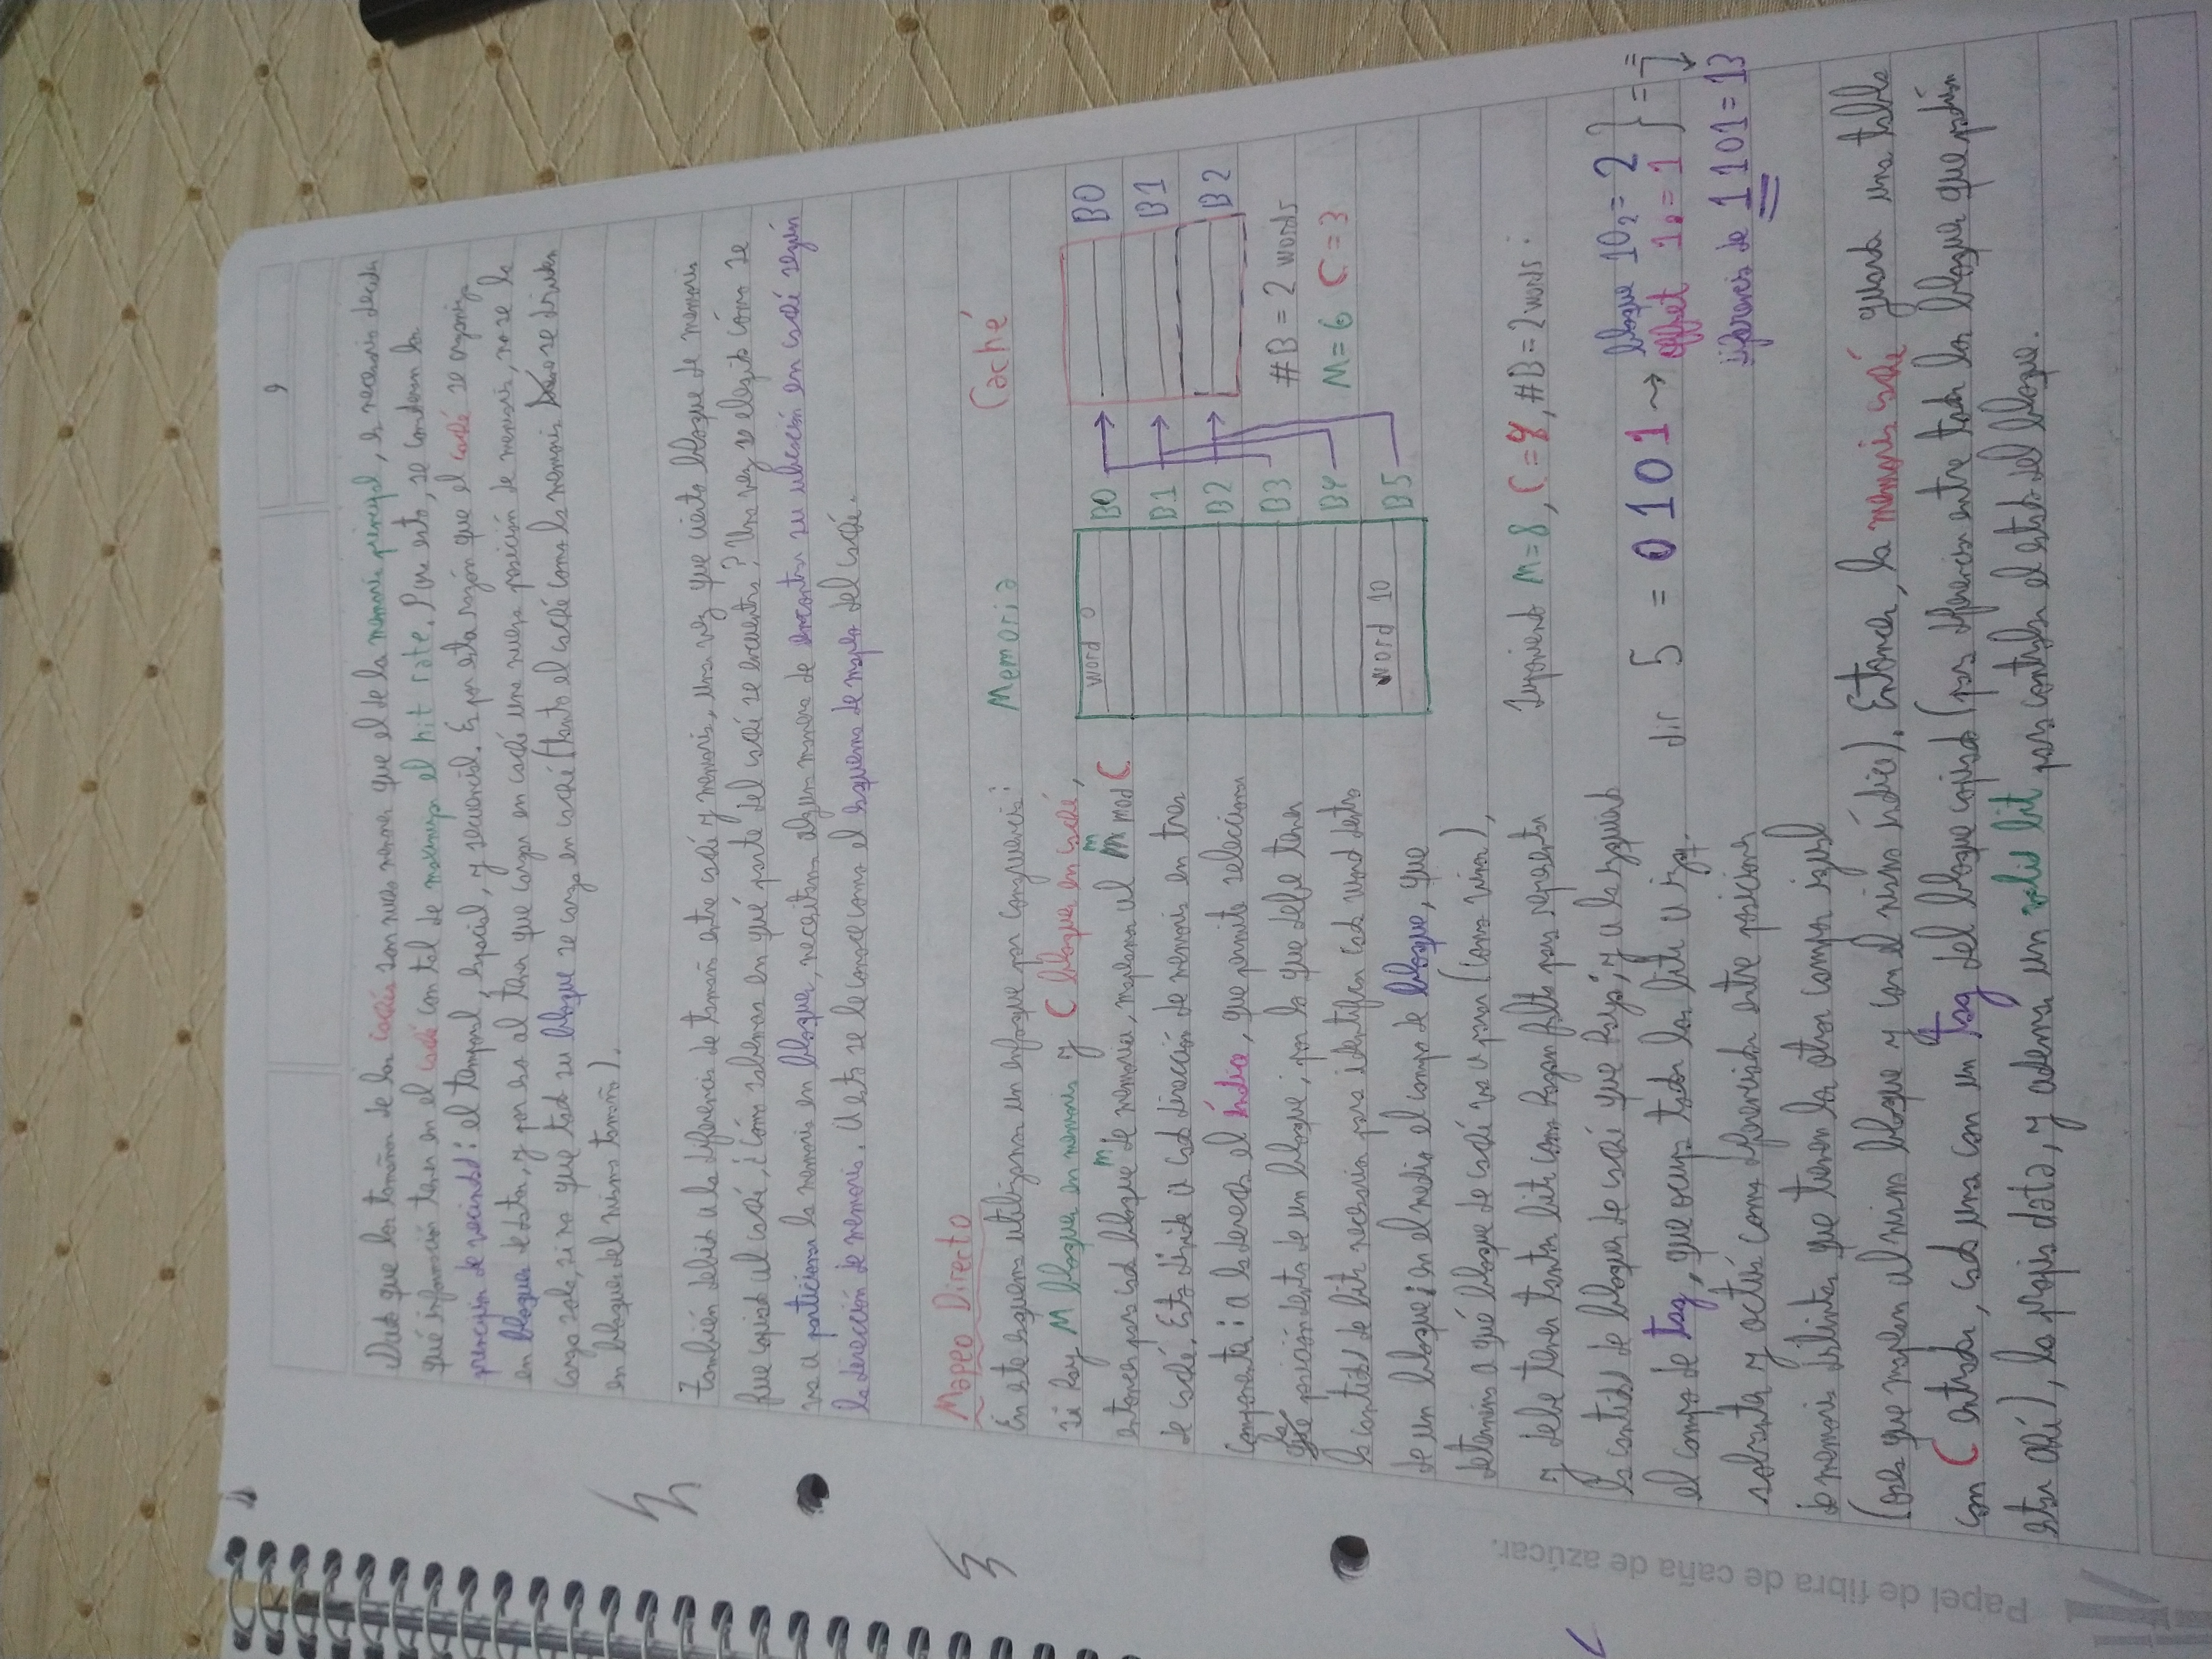 9
Dado que los tamaños de los cachés son mucho menores que el de la memoria principal, es necesario decidir
qué información tener en el caché con tal de maximizar el hit rate. Por esto, se consideran los
principios de vecindad: el temporal, espacial, y secuencial. Es por esta razón que el caché se organiza
en bloques de datos, y por eso al tener que cargar en caché una nueva posición de memoria, no se la
carga sola, si no que todo su bloque se carga en caché (tanto el caché como la memoria se dividen
en bloques del mismo tamaño).
También debido a la diferencia de tamaño entre caché y memoria, una vez que cierto bloque de memoria
fue copiado al caché, ¿cómo sabemos en qué parte del caché se encuentra? Una vez elegido cómo se
va a particionar la memoria en bloques, necesitamos alguna manera de encontrar su ubicación en caché según
la dirección de memoria. A esto se le conoce como el esquema de mapeo del caché.
Mapeo Directo
En este esquema utilizamos un enfoque por congruencia:
si hay M bloques en memoria y C bloques en caché,
entonces para cada bloque m de memoria, mapeamos al m mod C
de caché. Esto divide a cada dirección de memoria en tres
componentes: a la derecha el índice, que permite seleccionar
la posición dentro de un bloque; por lo que debe tener
la cantidad de bits necesarios para identificar cada word dentro
de un bloque; en el medio el campo de bloque, que
determina a qué bloque de caché va a parar (como vimos),
y debe tener tantos bits como hagan falta para representar
la cantidad de bloques de caché que haya; y a la izquierda
el campo de tag, que ocupa todos los bits a izq.
sobrantes y actúa como diferenciador entre posiciones
de memoria distintas que tienen los otros campos igual
(osea que mapean al mismo bloque y con el mismo índice). Entonces, la memoria caché guarda una tabla
con C entradas, cada una con un tag del bloque copiado (para diferenciar entre todos los bloques que podrían
estar ahí), la propia data, y además un valid bit para controlar el estado del bloque.
Memoria Caché
word 0
B0
B1
B2
B3
B4
word 10
B5
B0
B1
B2
#B = 2 words
M=6 C=3
Suponiendo M=8, C=4, #B=2 words:
dir 5 = 0101 → bloque 10₂ = 2
offset 1₂ = 1
diferencia de 1101 = 13
Papel de fibra de caña de azúcar.